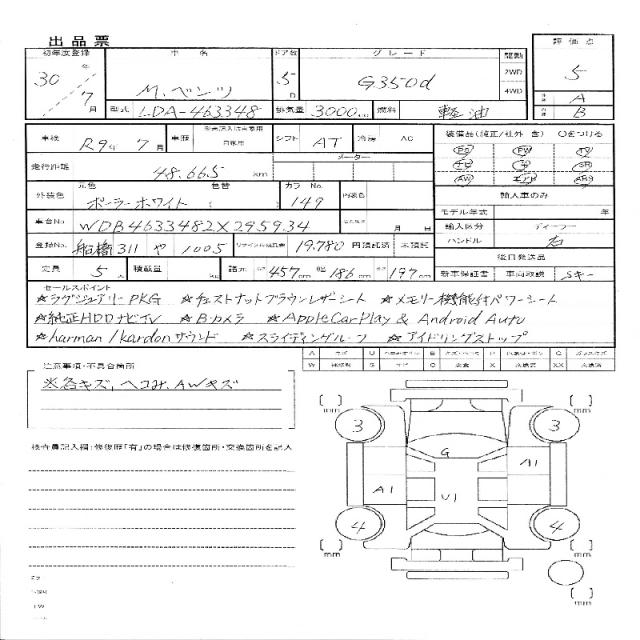 出品票
初年度登録 車名 ドア数 グレード 駆動 評価点
30年 7月 M.ベンツ 5D G350d 2WD 4WD 5
型式 LDA-463348 排気量 3000 燃料 軽油 A B
車検 R9年 7月 車歴 自家用 シフト AT 冷房 AC 装備品(純正/社外 含) ○をつける
走行距離 48.665 km メーター
外装色 元色 色替 カラーNo. 内装色
ポーラーホワイト ( ) 149 輸入車のみ
モデル年式 年
車台No WDB4633482X295934 月 日 輸入区分 ディーラー
登録No 船橋 311 や 1005 リサイクル預託金 19.780 円預託済 未預託 ハンドル 右
後日発送品
定員 5人 積載量 kg 諸元 457cm 186cm 197cm 新車保証書 車両取説 Sキー
セールスポイント
☆ラグジュアリーPKG ☆チェストナットブラウンレザーシート ☆メモリー機能付パワーシート
☆純正HDDナビTV ☆Bカメラ ☆Apple CarPlay & Android Auto
☆harman/kardonサウンド ☆スライディングルーフ ☆アイドリングストップ
注意事項・不具合箇所
※各キズ、ヘコみ、AWキズ
検査員記入欄:修復歴「有」の場合は修復箇所・交換箇所を記入
[ ]mm [ ]mm
3 3
G
A1 A1
U1
4 4
[ ]mm [ ]mm
[ ]mm